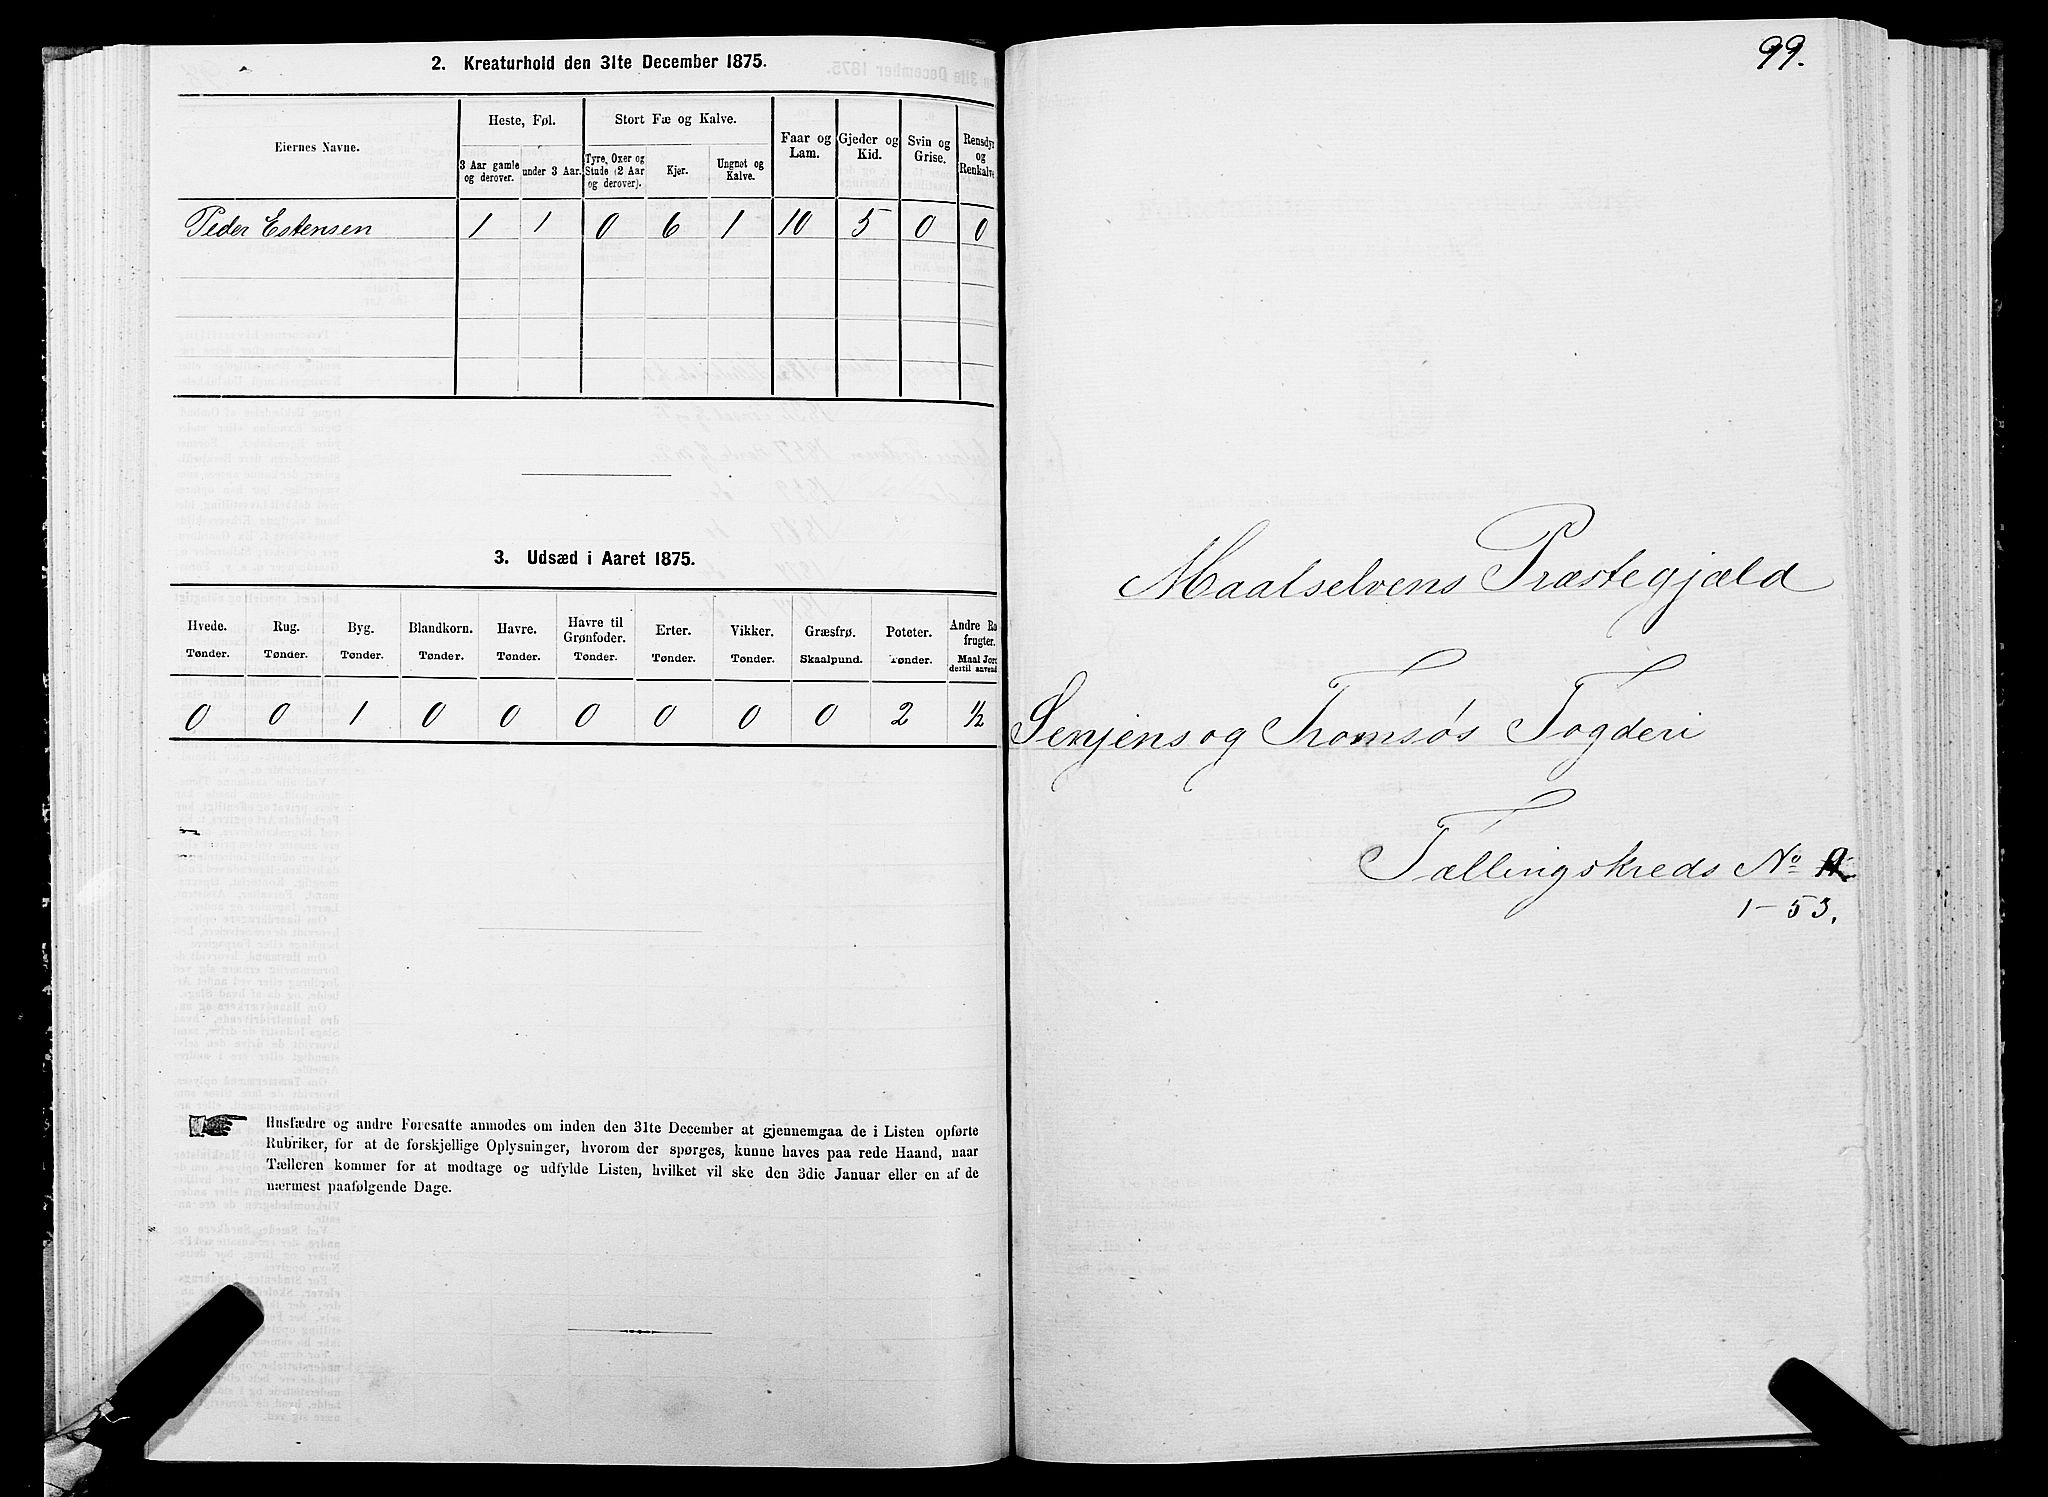 2. Kreaturhold den 31te December 1875.
Eiernes Navne.
Heste, Føl.
Stort Fæ og Kalve.
Faar og Lam.
Gjeder og Kid.
Svin og Grise.
Rensdyr og Renkalve
3 Aar gamle og derover.
under 3 Aar.
Tyre, Oxer og Stude (2 Aar og derover).
Kjør.
Ungnøt og Kalve.
Peder Estensen 1 1 0 6 1 10 5 0 0
3. Udsæd i Aaret 1875.
Hvede. Rug. Byg. Blandkorn. Havre. Havre til Grønfoder. Erter. Vikker. Græsfrø. Poteter. Andre Ro frugter.
Tønder. Tønder. Tønder. Tønder. Tønder. Tønder. Tønder. Tønder. Skaalpund. Tønder. Maal Jord dertil anvend
0 0 1 0 0 0 0 0 0 2 ½
Husfædre og andre Foresatte anmodes om inden den 31te December at gjennemgaa de i Listen opførte
Rubriker, for at de forskjellige Oplysninger, hvorom der spørges, kunne haves paa rede Haand, naar
Tælleren kommer for at modtage og udfylde Listen, hvilket vil ske den 3die Januar eller en af de
nærmest paafølgende Dage.
99.
Maalselvens Præstegjæld
Senjens og Tromsøs Fogderi
Tællingskreds No
1-53.